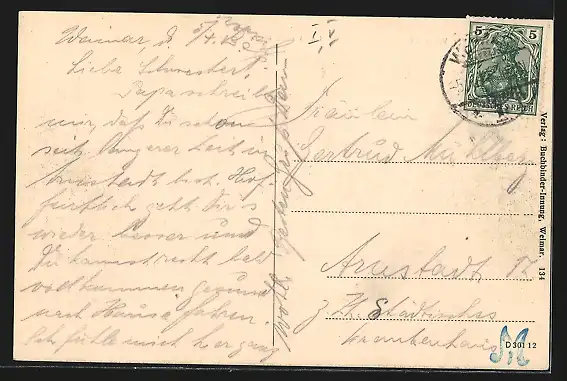 Weimar, d. 5/4. 12.
Liebe Schwester!
Papa schreibt
mir, daß Du schon
seit längerer Zeit in
Arnstadt bist. Hof-
fentlich geht Dir's
wieder besser und
Du kannst recht bald
vollkommen gesund
nach Hause fahren.
Ich fühle mich hier ganz
wohl.
Fräulein
Gertrud
Arnstadt i. Th.
z. Zt. Städtisches
Krankenhaus
5 5
DEUTSCHES REICH
Verlag: Buchbinder-Innung, Weimar. 134
D 301 12